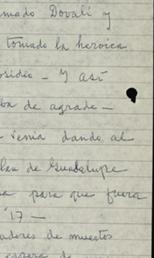 mado Dovali y
tomado la heroica
osidio — Y así
ba de agrado —
venía dando al
de Guadalupe
a para que fuera
'17 —
adores de muestos
espera de